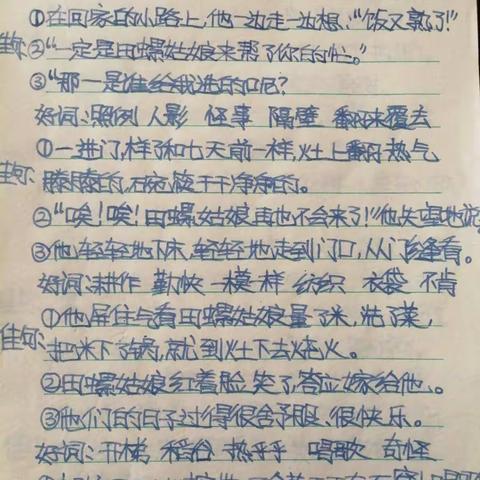 ①在回家的小路上,他一边走一边想:“饭又熟了!”
佳句:②“一定是田螺姑娘来帮了你的忙。”
③“那一是谁给我送的呢?
好词:照例 人影 怪事 隔壁 翻来覆去
①一进门,样子和七天前一样,灶上翻热气
佳句:腾腾的,碗,筷干干净净的。
②“唉!唉!田螺姑娘再也不会来了!”他失望地说
③他,轻轻地下床,轻轻地走到门口,从门缝看。
好词:耕作 勤快 一模一样 纺织 衣袋 不肯
①他屏住气看田螺姑娘量了米,洗了菜,
佳句:把米下了锅,就到灶下去烧火。
②田螺姑娘红着脸,笑了,答应嫁给他。
③他们的日子过得很舒服、很快乐。
好词:开梯 稻谷 热乎乎 唱歌 奇怪